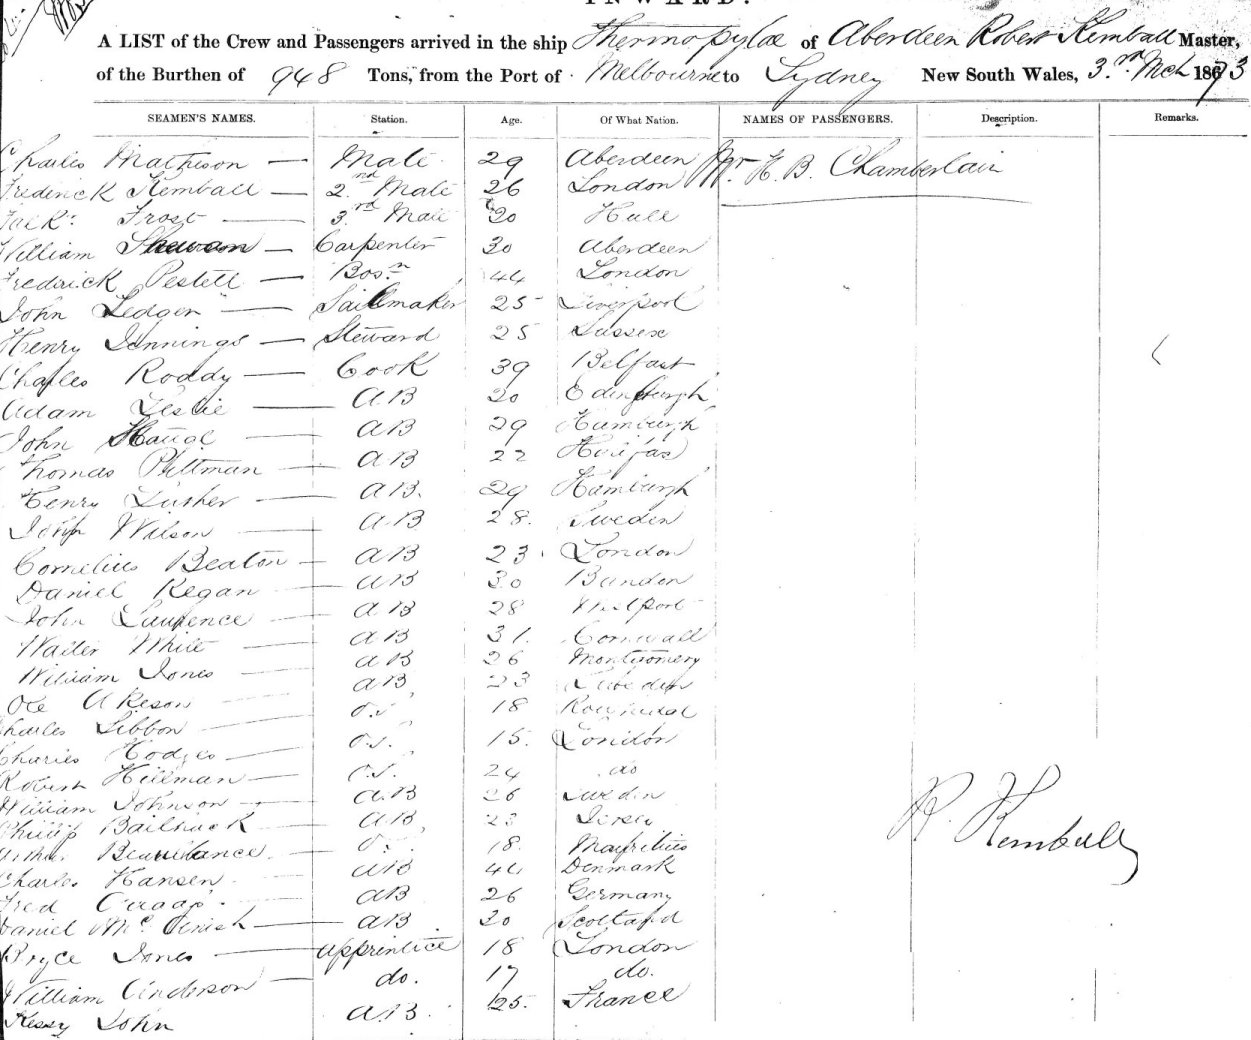 INWARD.
A LIST of the Crew and Passengers arrived in the ship Thermopylae of Aberdeen Robert Kemball Master,
of the Burthen of 948 Tons, from the Port of Melbourne to Sydney New South Wales, 3rd Mch 1873
SEAMEN'S NAMES. Station. Age. Of What Nation. NAMES OF PASSENGERS. Description. Remarks.
Charles Matheson — Mate 29 Aberdeen Mr H. B. Chamberlain
Frederick Kemball — 2nd Mate 26 London
Frost — 3rd Mate 20 Hull
William Shewan — Carpenter 30 Aberdeen
Frederick Pestell — Bosn 44 London
John Ledger — Sailmaker 25 Liverpool
Henry Jennings — Steward 25 Sussex
Charles Roddy — Cook 39 Belfast
Adam Leslie — A.B 20 Edinburgh
John — AB 29 Hamburgh
Thomas Pittman — AB 22
Henry Luther — AB. 29 Hamburgh
John Wilson — AB 28. Sweden
Cornelius Beaton — AB 23. London
Daniel Regan — AB 30
John Laurence — A.B 28
Walter White — AB 31. Cornwall
William Jones — AB 26 Montgomery
Ole Akeson — AB 23
Charles Libbon — O.S 18
Charles Hodges — O.S. 15. London
Robert Hillman — O.S. 24 do
William Johnson — A.B 26 Sweden
Phillip Bailhack — AB 23 Jersey
18. Mauritius
Charles Hansen — AB 44 Denmark
Fred — AB 26 Germany
Daniel — AB 20 Scotland
Bryce Jones — Apprentice 18 London
William Anderson — do. 17 do.
John A.B. 25. France
R. Kemball